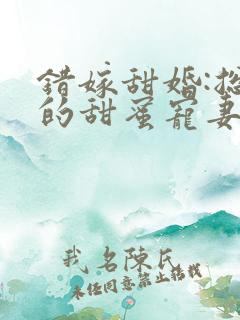 错嫁甜婚:总
的甜蜜宠妻
我名陈氏
未经同意禁止转载